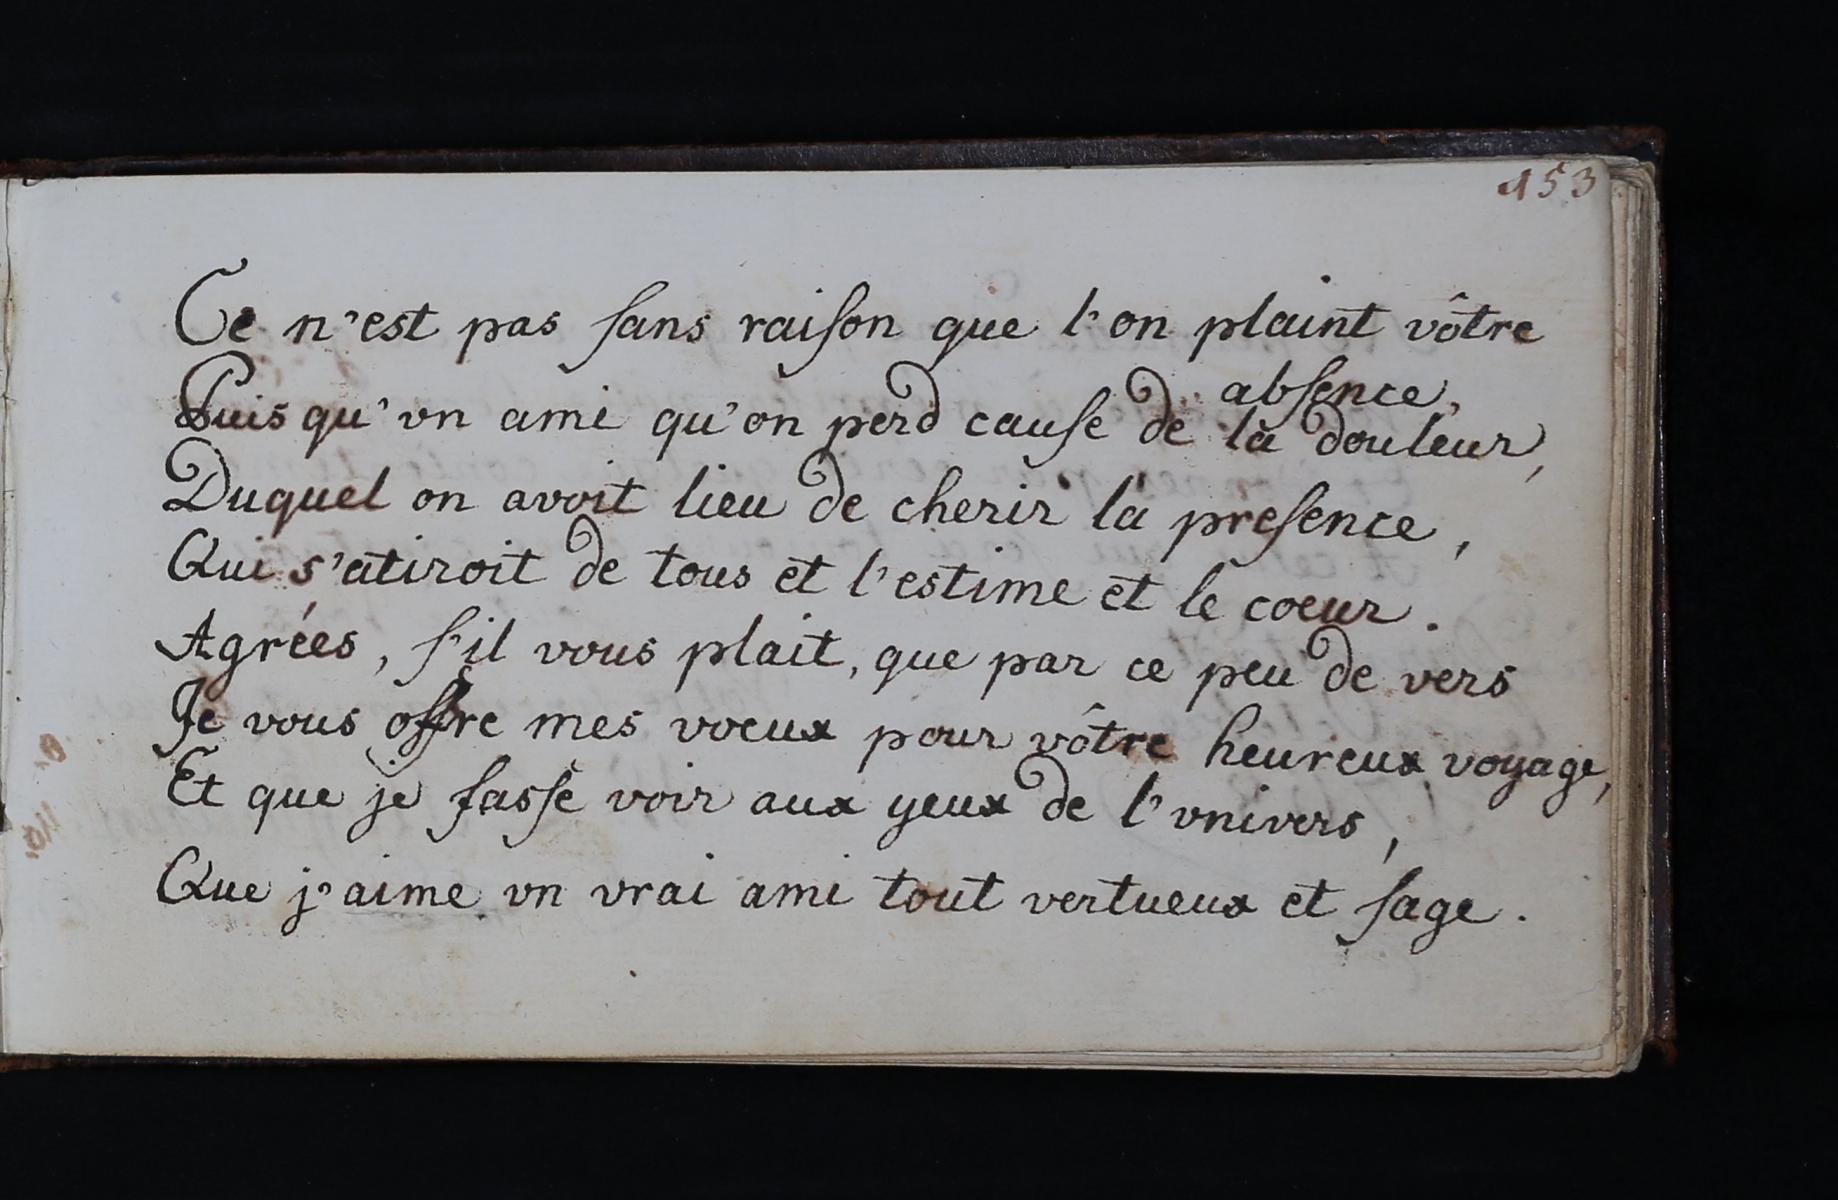 153
Ce n'est pas ſans raiſon que l'on plaint vôtre
abſence,
Puis qu'vn ami qu'on perd cauſe de la douleur,
Duquel on avoit lieu de cherir la preſence,
Qui s'atiroit de tous et l'estime et le coeur.
Agrées, ſ'il vous plait, que par ce peu de vers
Je vous offre mes voeux pour vôtre heureux voyage,
Et que je fasſe voir aux yeux de l'vnivers,
Que j'aime vn vrai ami tout vertueux et ſage.